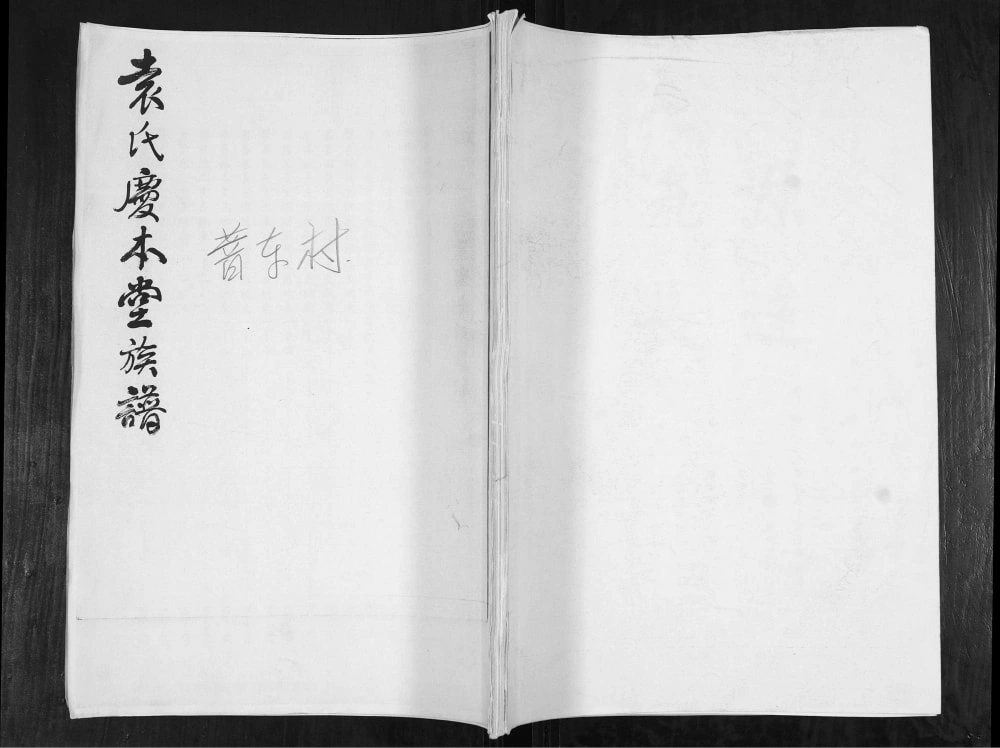 袁氏慶本堂族譜
莟车村